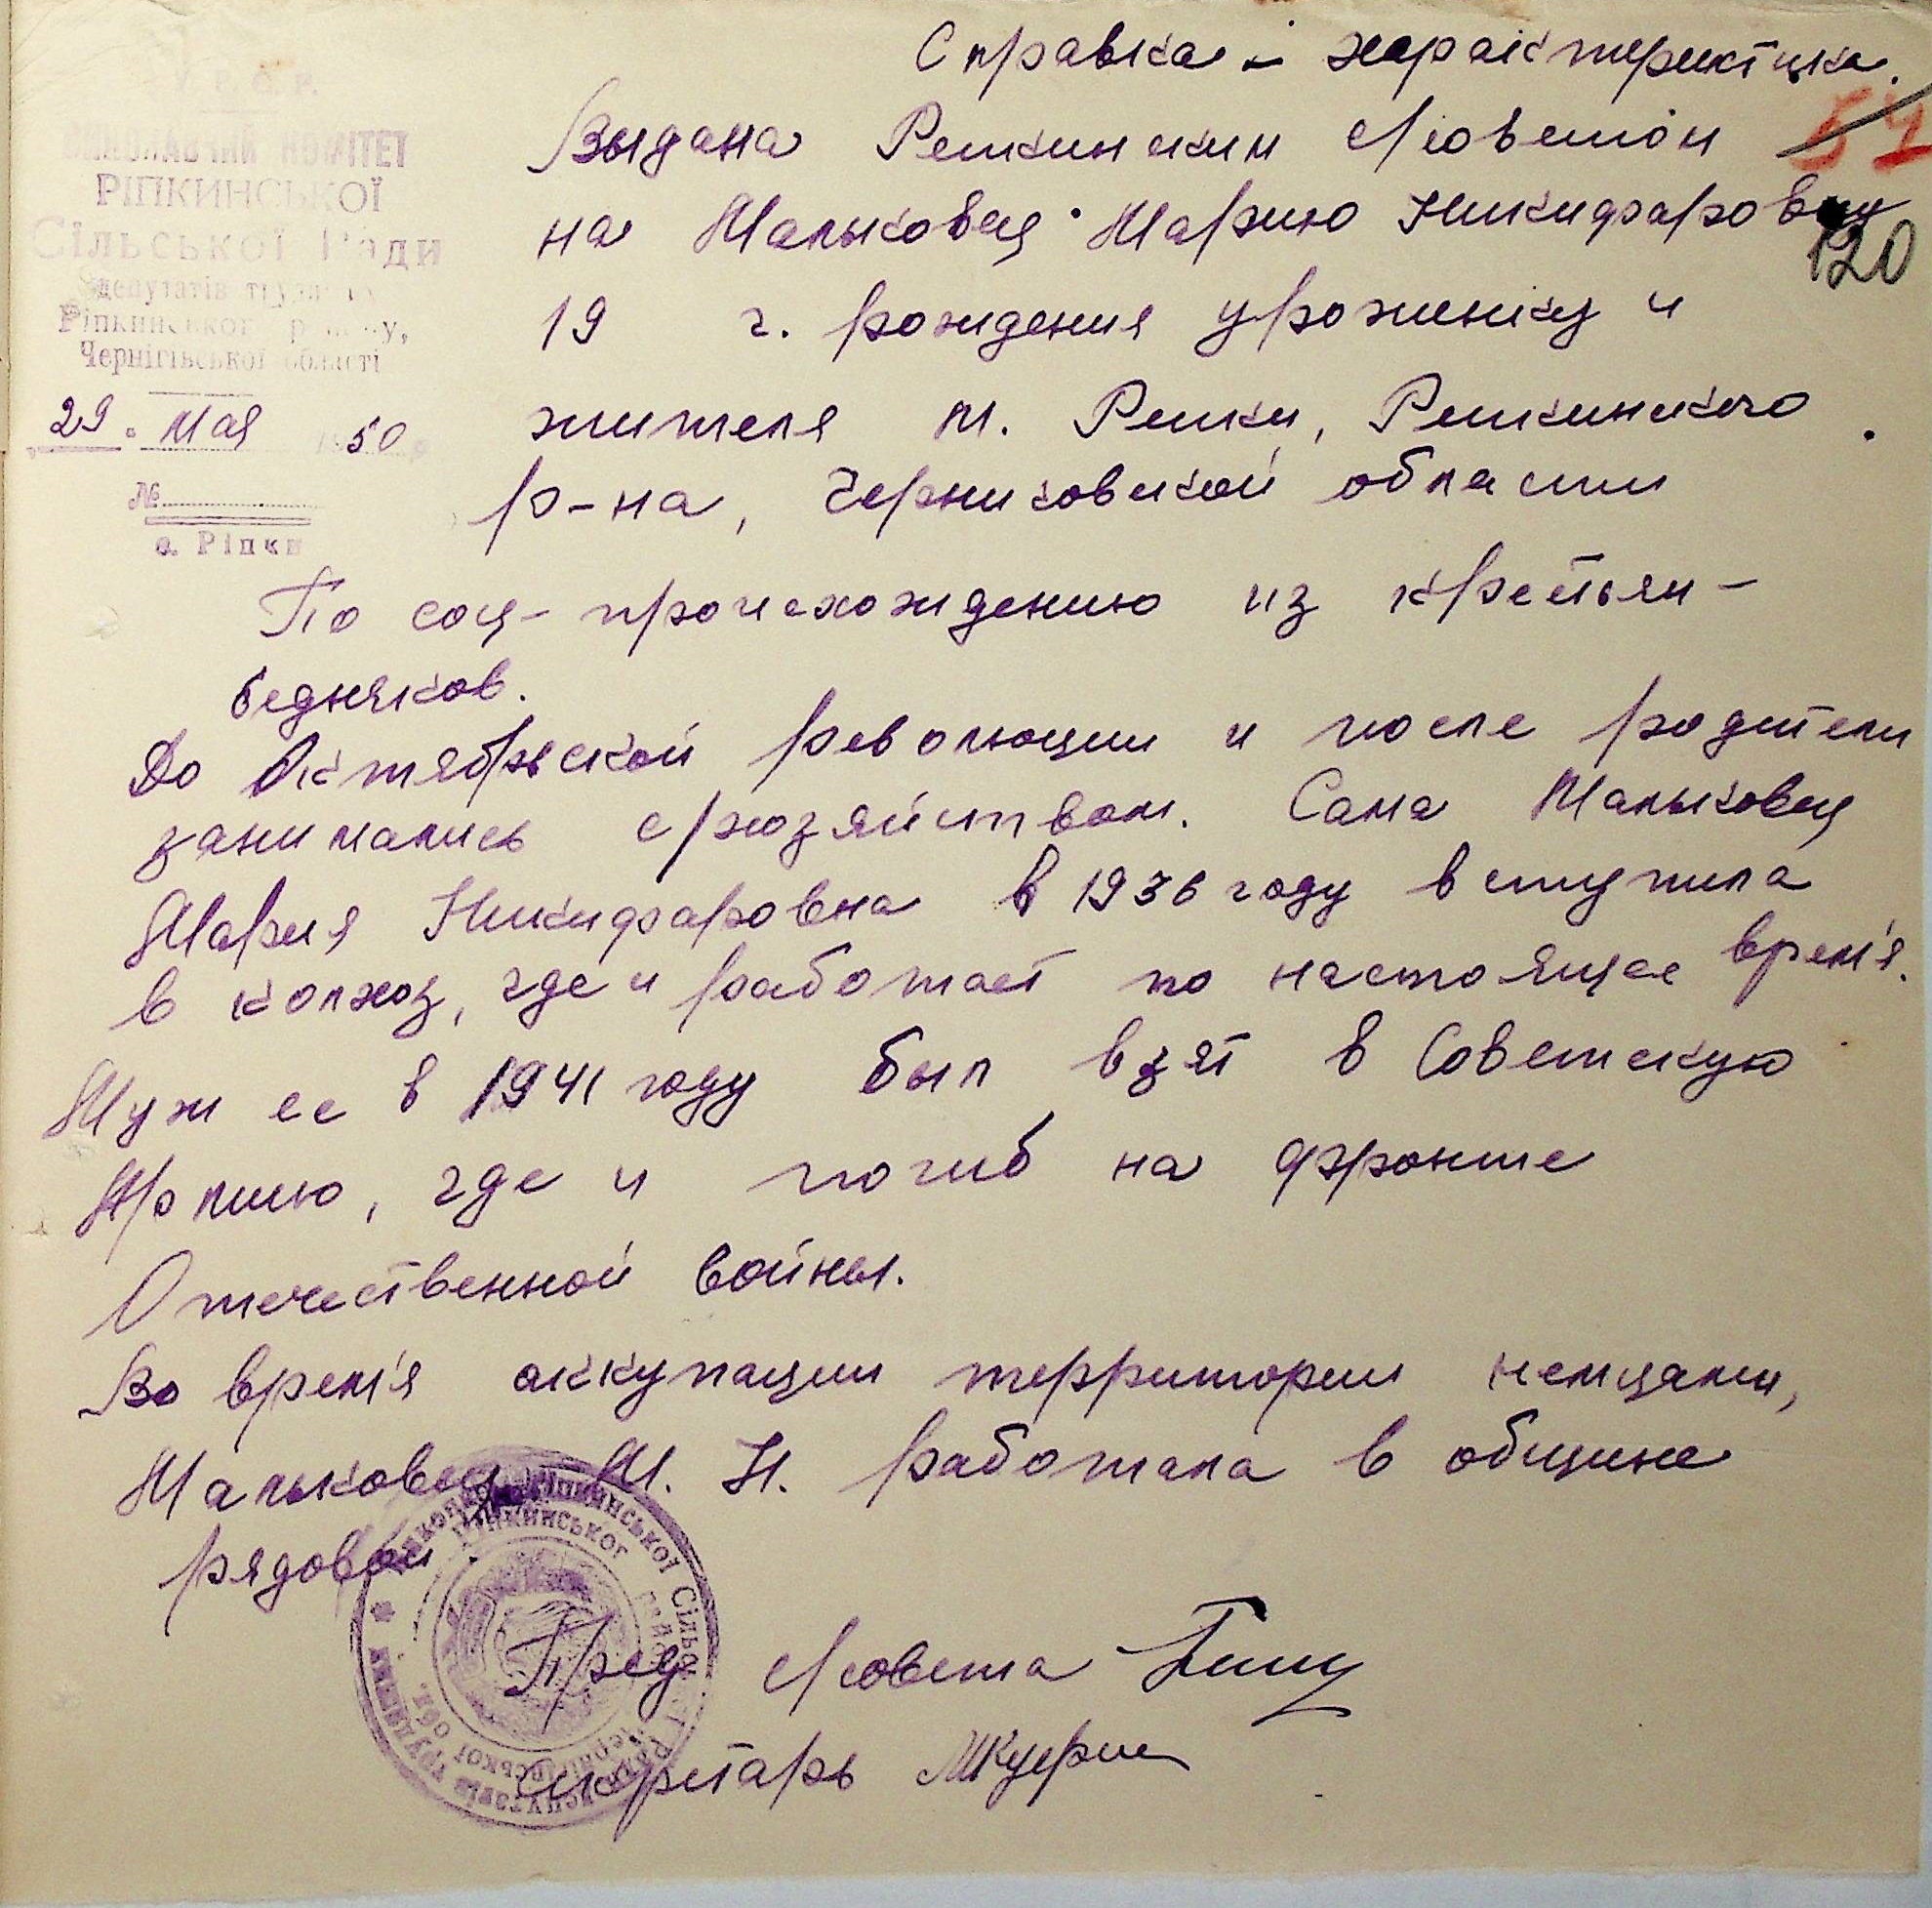 Справка - характеристика.
54
120
У. Р. С. Р.
ВИКОНАВЧИЙ КОМІТЕТ
РІПКИНСЬКОЇ
Сільської Ради
депутатів трудящих
Ріпкинського району,
Чернігівської області
29 мая 1950 р
№
с. Ріпки
Выдана Репкинским с/советом
на Мальковец Марию Никифаровну
19 г. рождения уроженку и
жителя м. Репки, Репкинского
р-на, Черниговской области
По соц-происхождению из крестьян-
бедняков.
До Октябрьской революции и после родители
занимались с/хозяйством. Сама Мальковец
Мария Никифаровна в 1936 году вступила
в колхоз, где и работает по настоящее время.
Муж ее в 1941 году был взят в Советскую
Армию, где и погиб на фронте
Отечественной войны.
Во время оккупации территории немцами,
Мальковец М. Н. работала в общине
рядовой.
Пред с/совета
секретарь